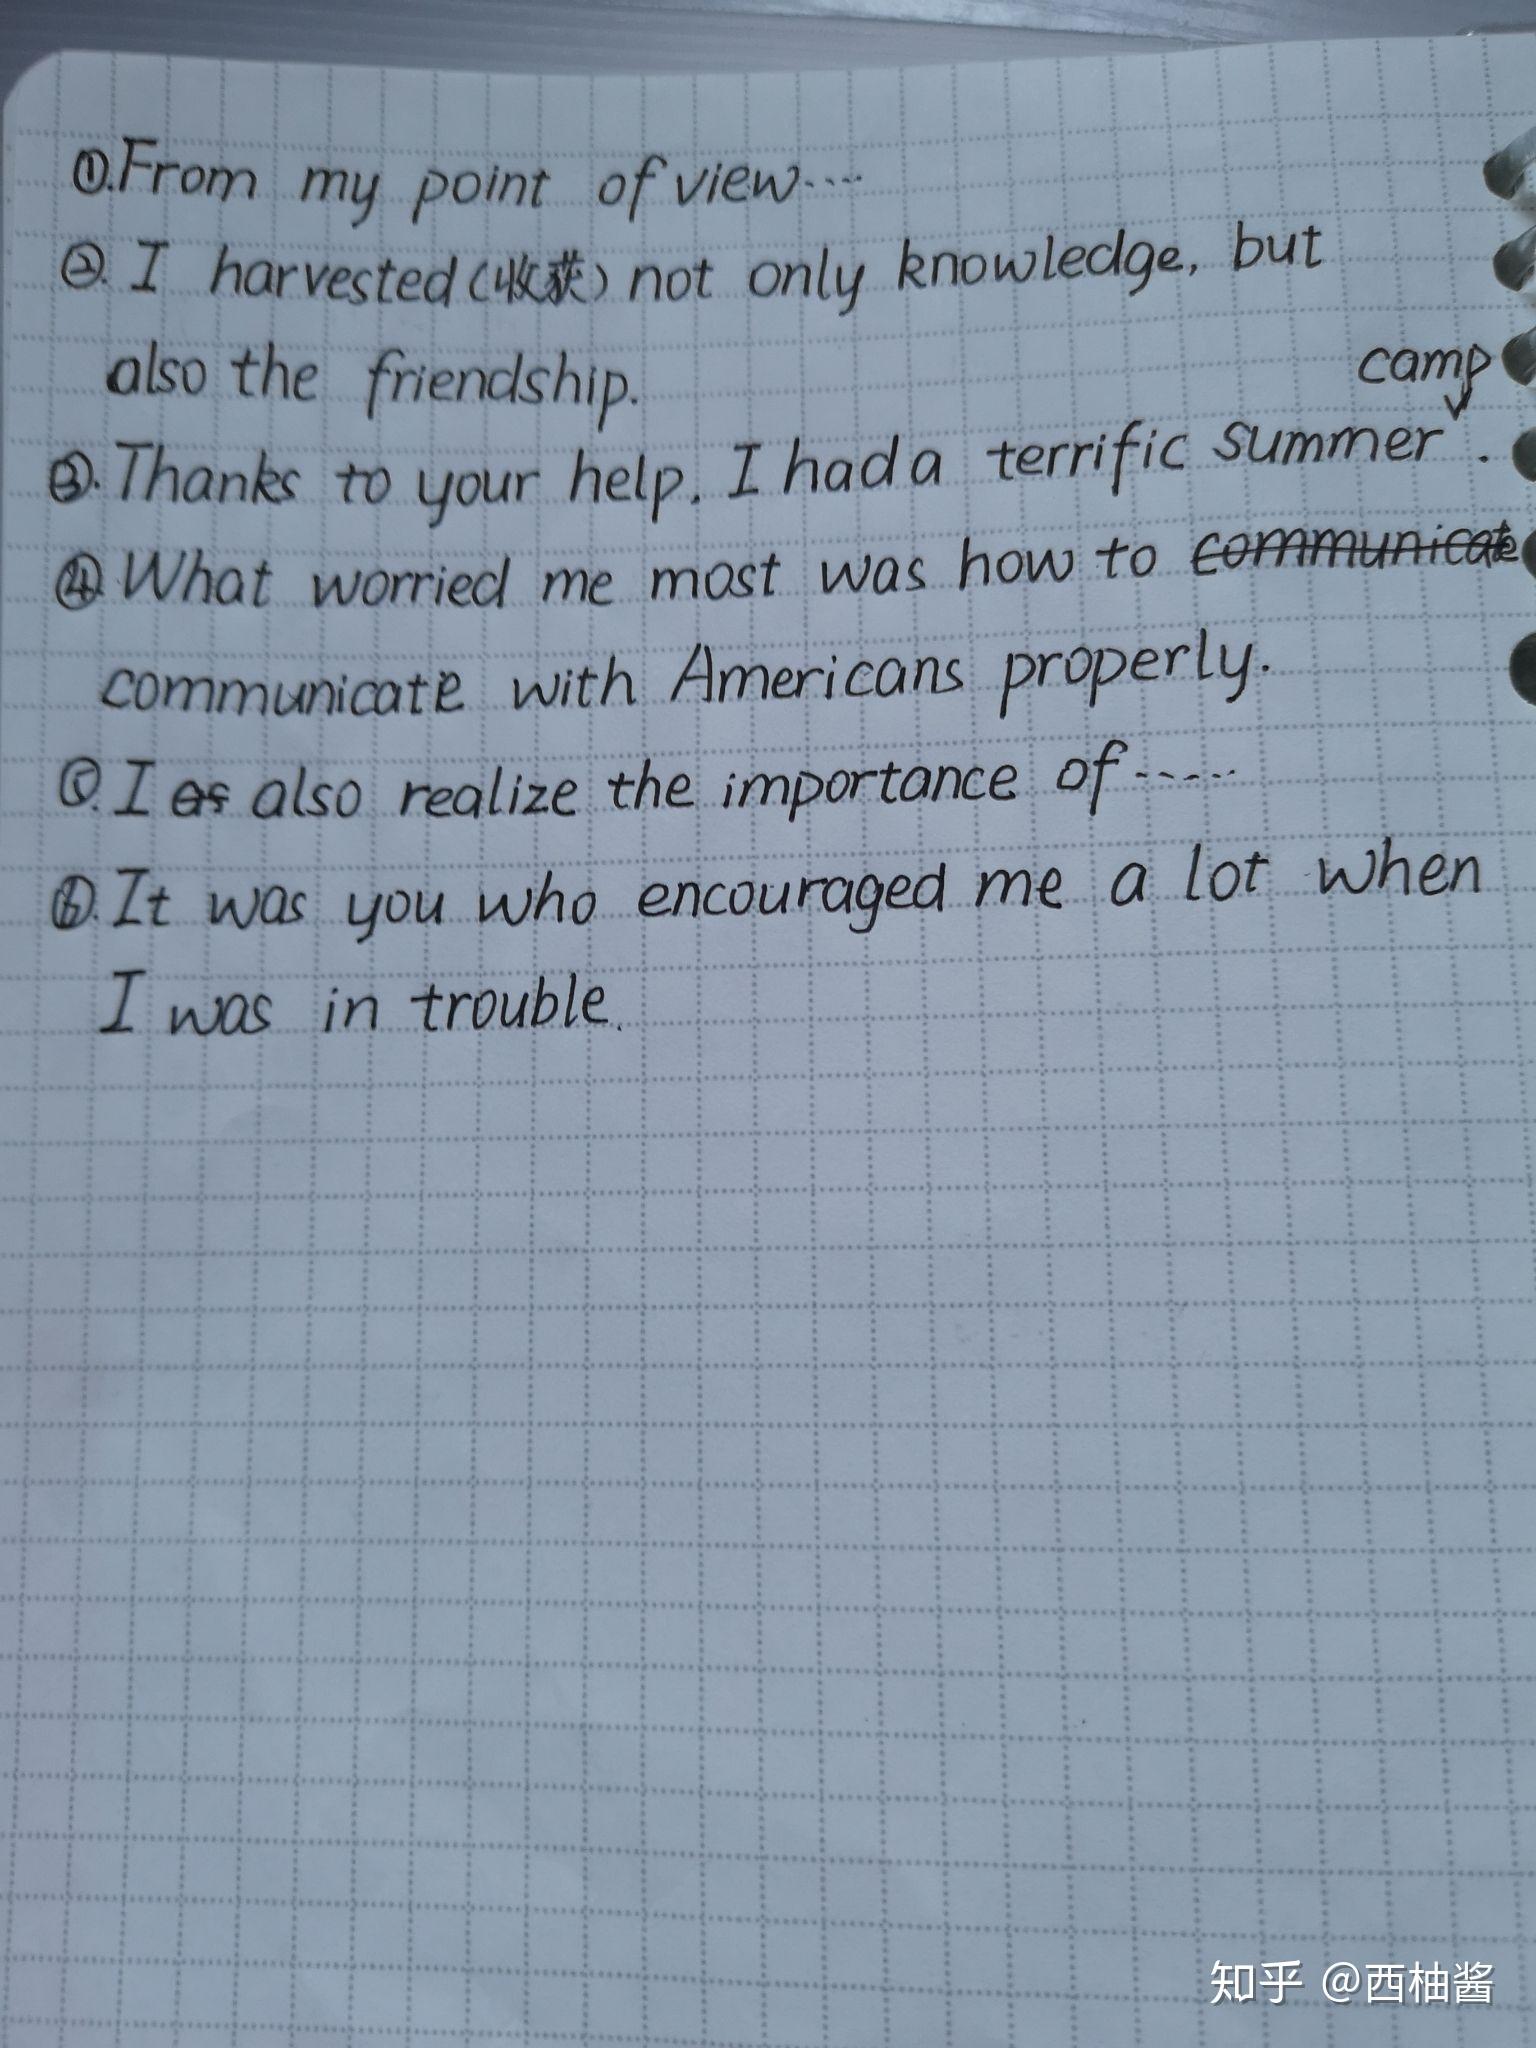 ①.From my point of view....
②. I harvested(收获) not only knowledge, but
also the friendship.
camp
③. Thanks to your help, I had a terrific summer .
④ What worried me most was how to communicate
communicate with Americans properly.
⑤. I as also realize the importance of.....
⑥. It was you who encouraged me a lot when
I was in trouble.
知乎 @西柚酱